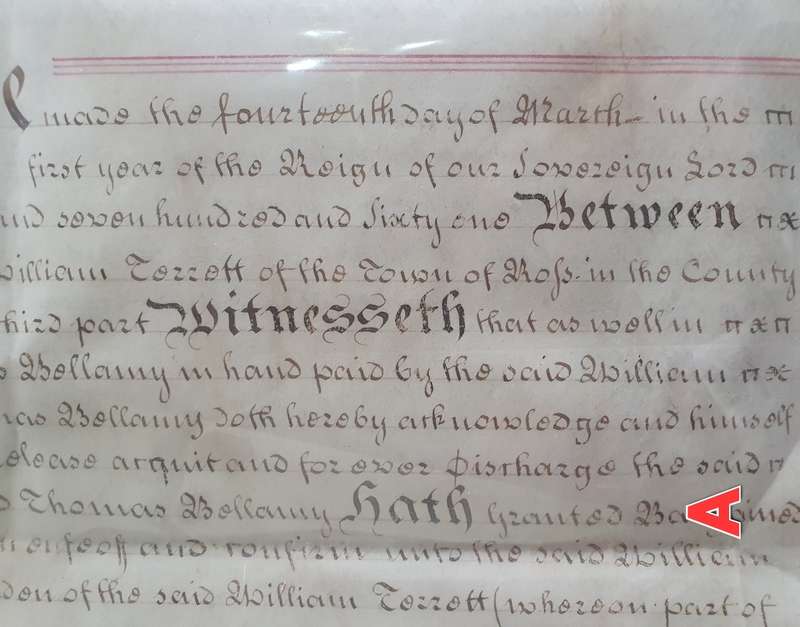 made the fourteenth day of March in the
first year of the Reign of our Sovereign Lord
seven hundred and Sixty one Between
William Terrett of the Town of Ross in the County
third part Witnesseth that as well in
Bellamy in hand paid by the said William
Bellamy doth hereby acknowledge and himself
acquit and for ever Discharge the said
Thomas Bellamy Hath Granted
A
enfeoff and confirm unto the said William
of the said William Terrett (whereon part of